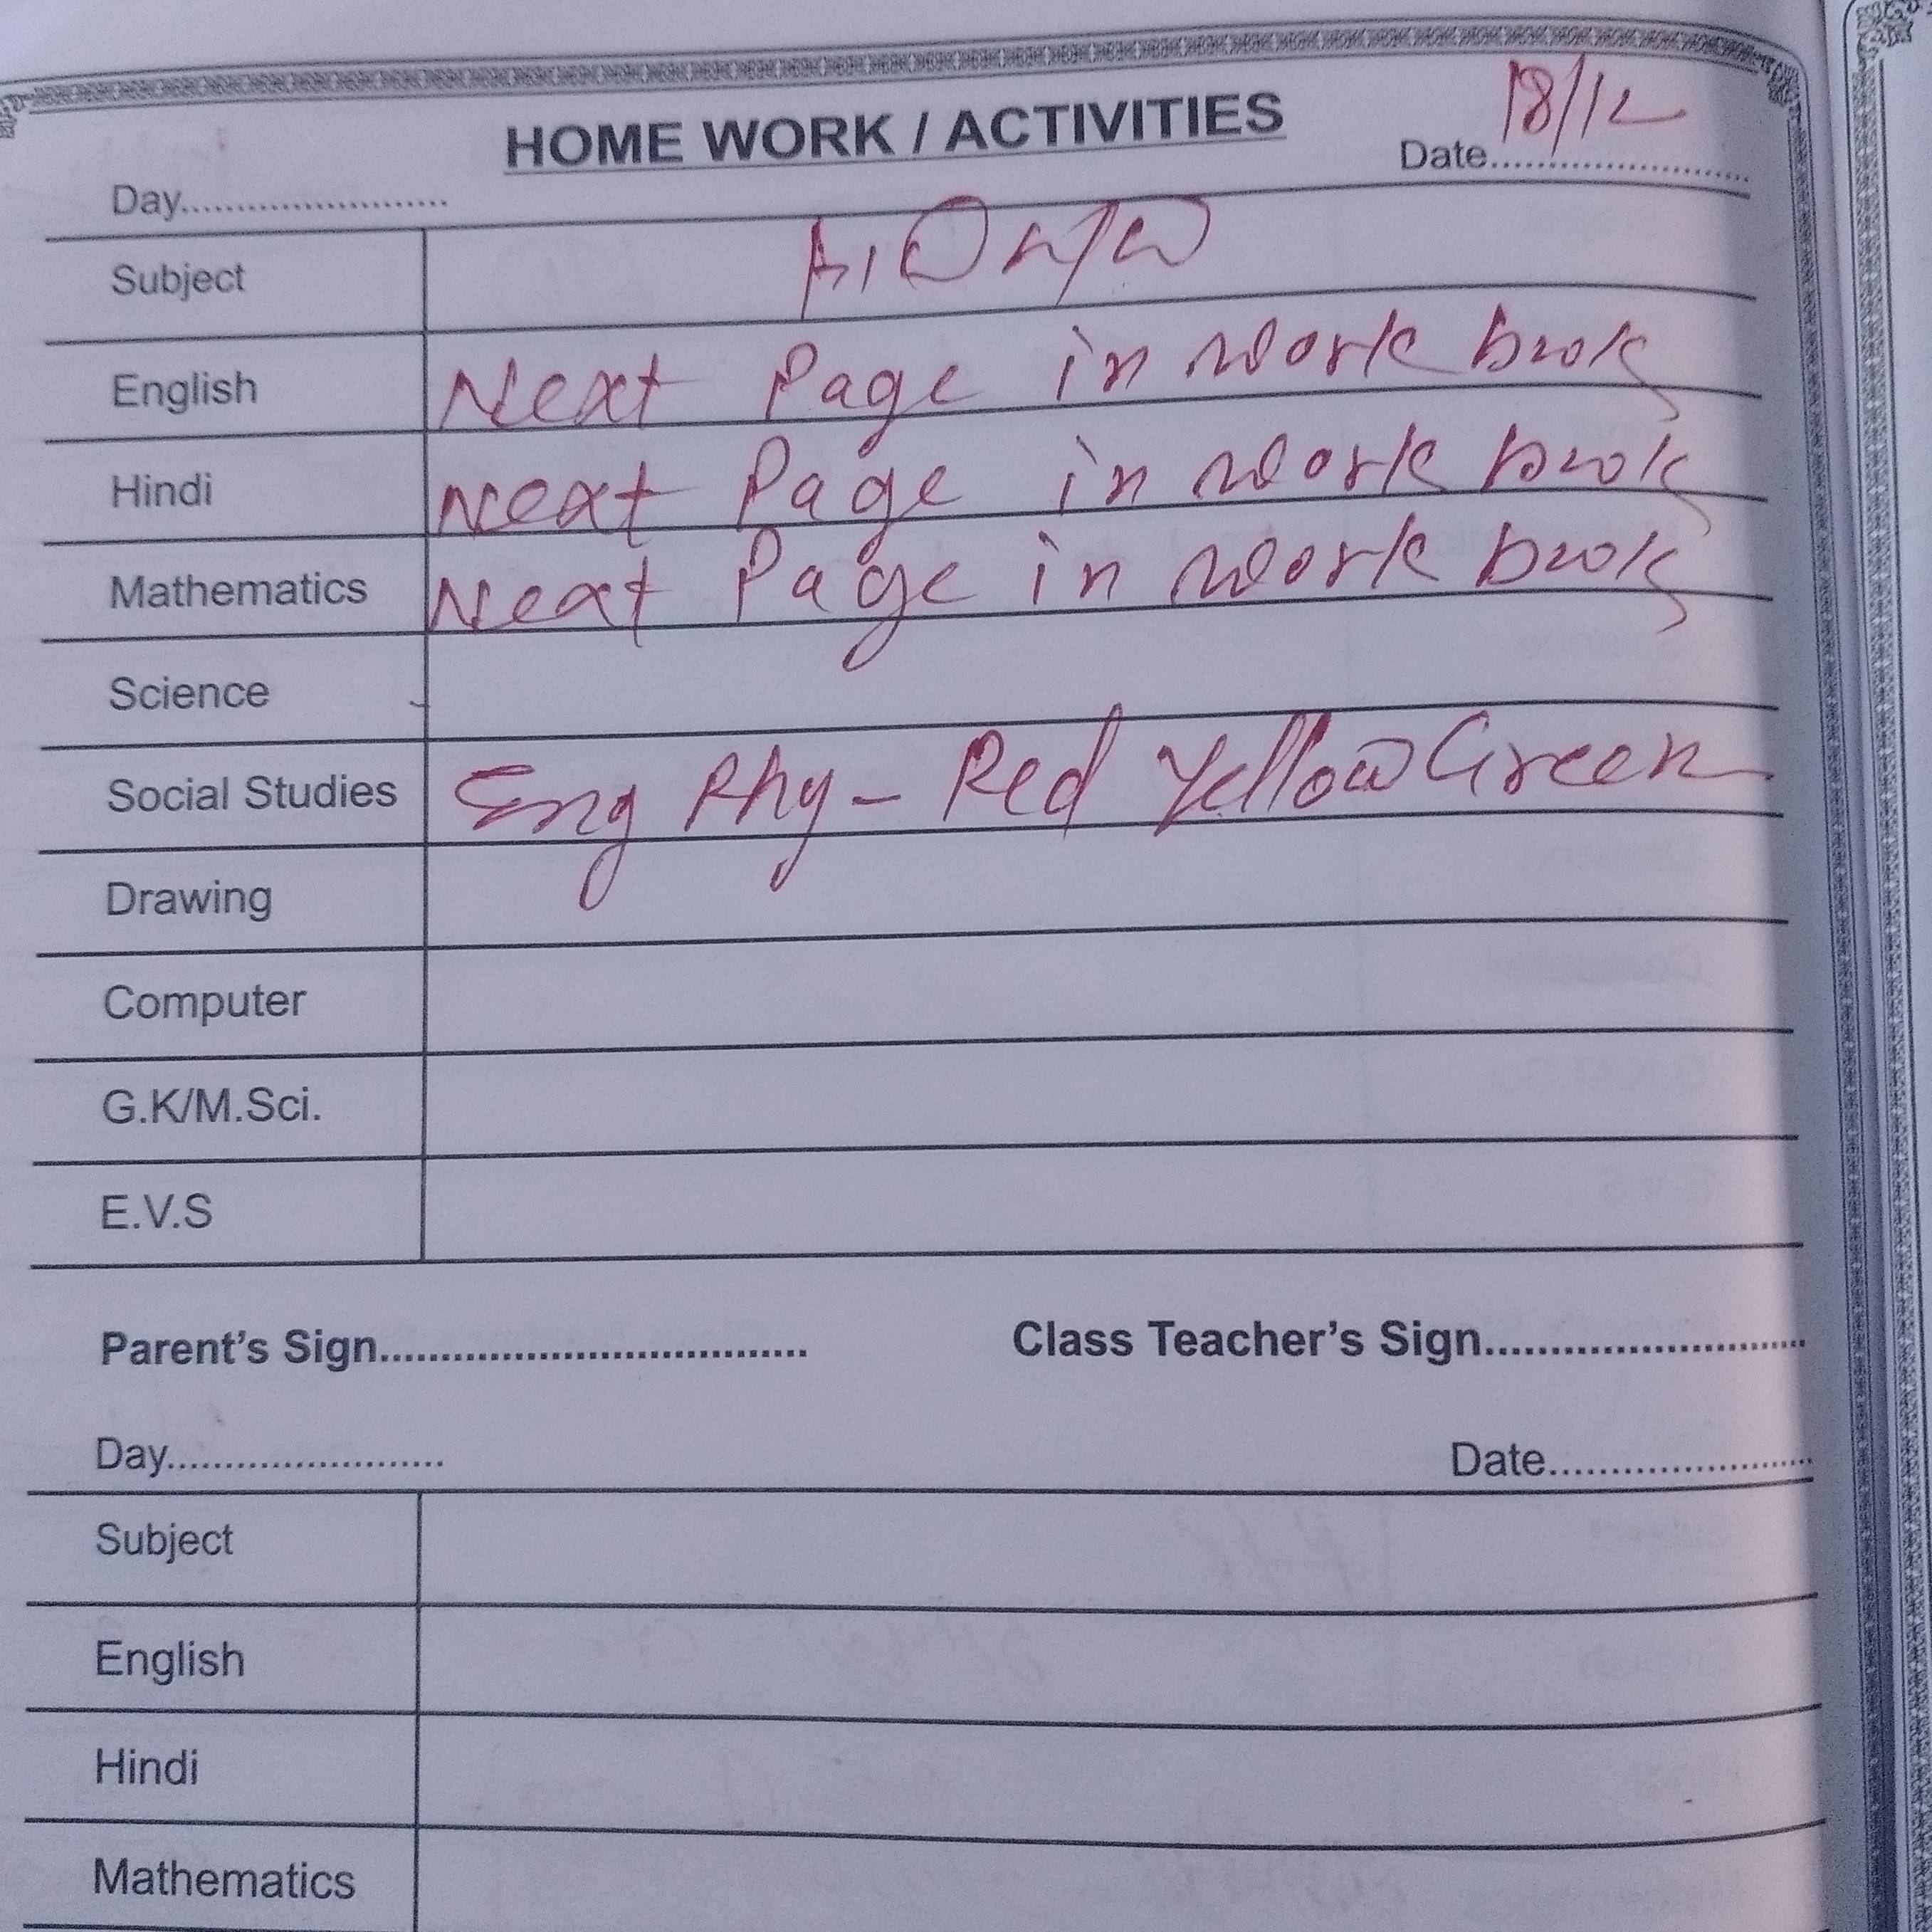 HOME WORK / ACTIVITIES
Day........................ Date........................ 18/12
Subject
English Next Page in work book
Hindi Next Page in work book
Mathematics Next Page in work book
Science
Social Studies Eng Rhy - Red Yellow Green
Drawing
Computer
G.K/M.Sci.
E.V.S
Parent's Sign.................................... Class Teacher's Sign............................
Day........................ Date........................
Subject
English
Hindi
Mathematics